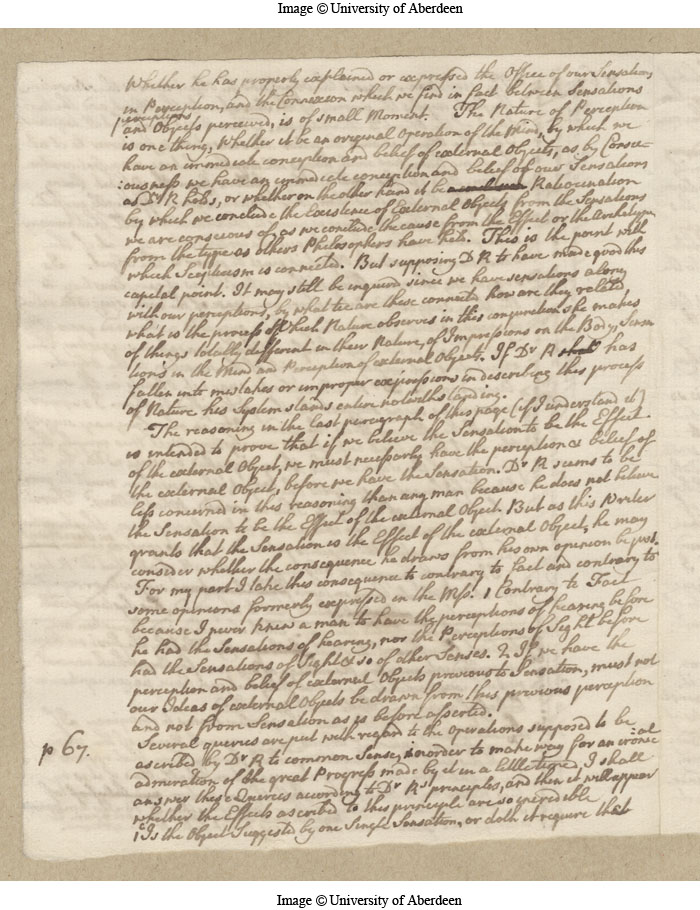 Image © University of Aberdeen
Whether he has properly explained or expressed the Office of our Sensations
in Perception, and the Connexion which we find in fact between Sensations
perceptions
and Objects perceived, is of small Moment. The Nature of Perception
is one thing, Whether it be an original Operation of the Mind, by which we
have an immediate conception and belief of external Objects, as by Consci-
:ousness we have an immediate conception and belief of our Sensations
as Dr R holds, or whether on the other hand it be Ratiocination
by which we conclude the Existence of External Objects from the Sensations
we are conscious of as we conclude the cause from the Effect or the Archetype
from the type as others Philosophers have held. This is the point with
which Scepticism is connected. But supposing Dr R to have made good this
capital point. It may still be inquired since we have sensations along
with our perceptions, by what tie are these connected how are they related,
what is the process which Nature observes in this conjunction she makes
of things totally different in their Nature, of Impressions on the Body, Sensa
tions in the Mind and Perception of external Objects. If Dr R has
fallen into mistakes or improper expressions in describing this process
of Nature his System stands entire notwithstanding.
The reasoning in the last paragraph of this page (if I understand it)
is intended to prove that if we believe the Sensation to be the Effect
of the external Object, we must necessarly have the perception & belief of
the external Object, before we have the Sensation. Dr R seems to be
less concerned in this reasoning than any man because he does not believe
the Sensation to be the Effect of the external Object. But as this Writer
grants that the Sensation is the Effect of the external Object, he may
consider whether the consequence he draws from his own opinion be just.
For my part I take this consequence to contrary to fact and contrary to
some opinions formerly expressed in the Mss. 1 Contrary to Fact
because I never knew a man to have the perceptions of hearing before
he had the Sensations of hearing, nor the Perceptions of Sight before
had the Sensations of Sight & so of other Senses. 2 If we have the
perception and belief of external Objects previous to Sensation, must not
our Ideas of external Objects be drawn from this previous perception
and not from Sensation as is before asserted.
p 67. Several queries are put with regard to the Operations supposed to be
ascribed by Dr R to common Sense, in order to make way for an ironical
admiration of the great Progress made by it in a I shall
answer these Queries according to Dr Rs principles, and then it will appear
whether the Effects ascribed to this principle are so incredible
1 Is the Object Suggested by one Single Sensation, or doth it require that
Image © University of Aberdeen